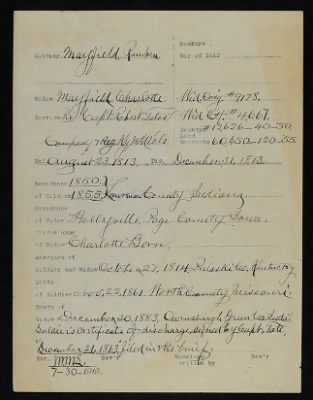 Soldier Mayfield Reuben
Numbers
War of 1812
Widow Mayfield Charlotte Wid. Orig. # 9178.
Service Ky. Capt. Robert Tate's Wid. Ctf. # 4,667.
Bounty # 12,626-40-50
Company 7 Reg Ky Vols Land
Warrants 60,650-120-55.
Enl. August 23, 1813. Dis. December 31, 1813.
Residence 1850.
of Soldier 1855, Lawrence County Indiana.
Residence
of Widow Page County Iowa.
Maiden name
of Widow Charlotte Born.
Marriage of
Soldier and Widow October 27, 1814 Pulaski Co. Kentucky
Death
of Soldier 22, 1861. Worth County Missouri.
Death
of Widow December 30, 1883, Owensburgh Green Co. Inda.
Soldier's certificate of discharge, signed by Capt. Tate,
December 31, 1813, filed in the brief.
7-30-1910.